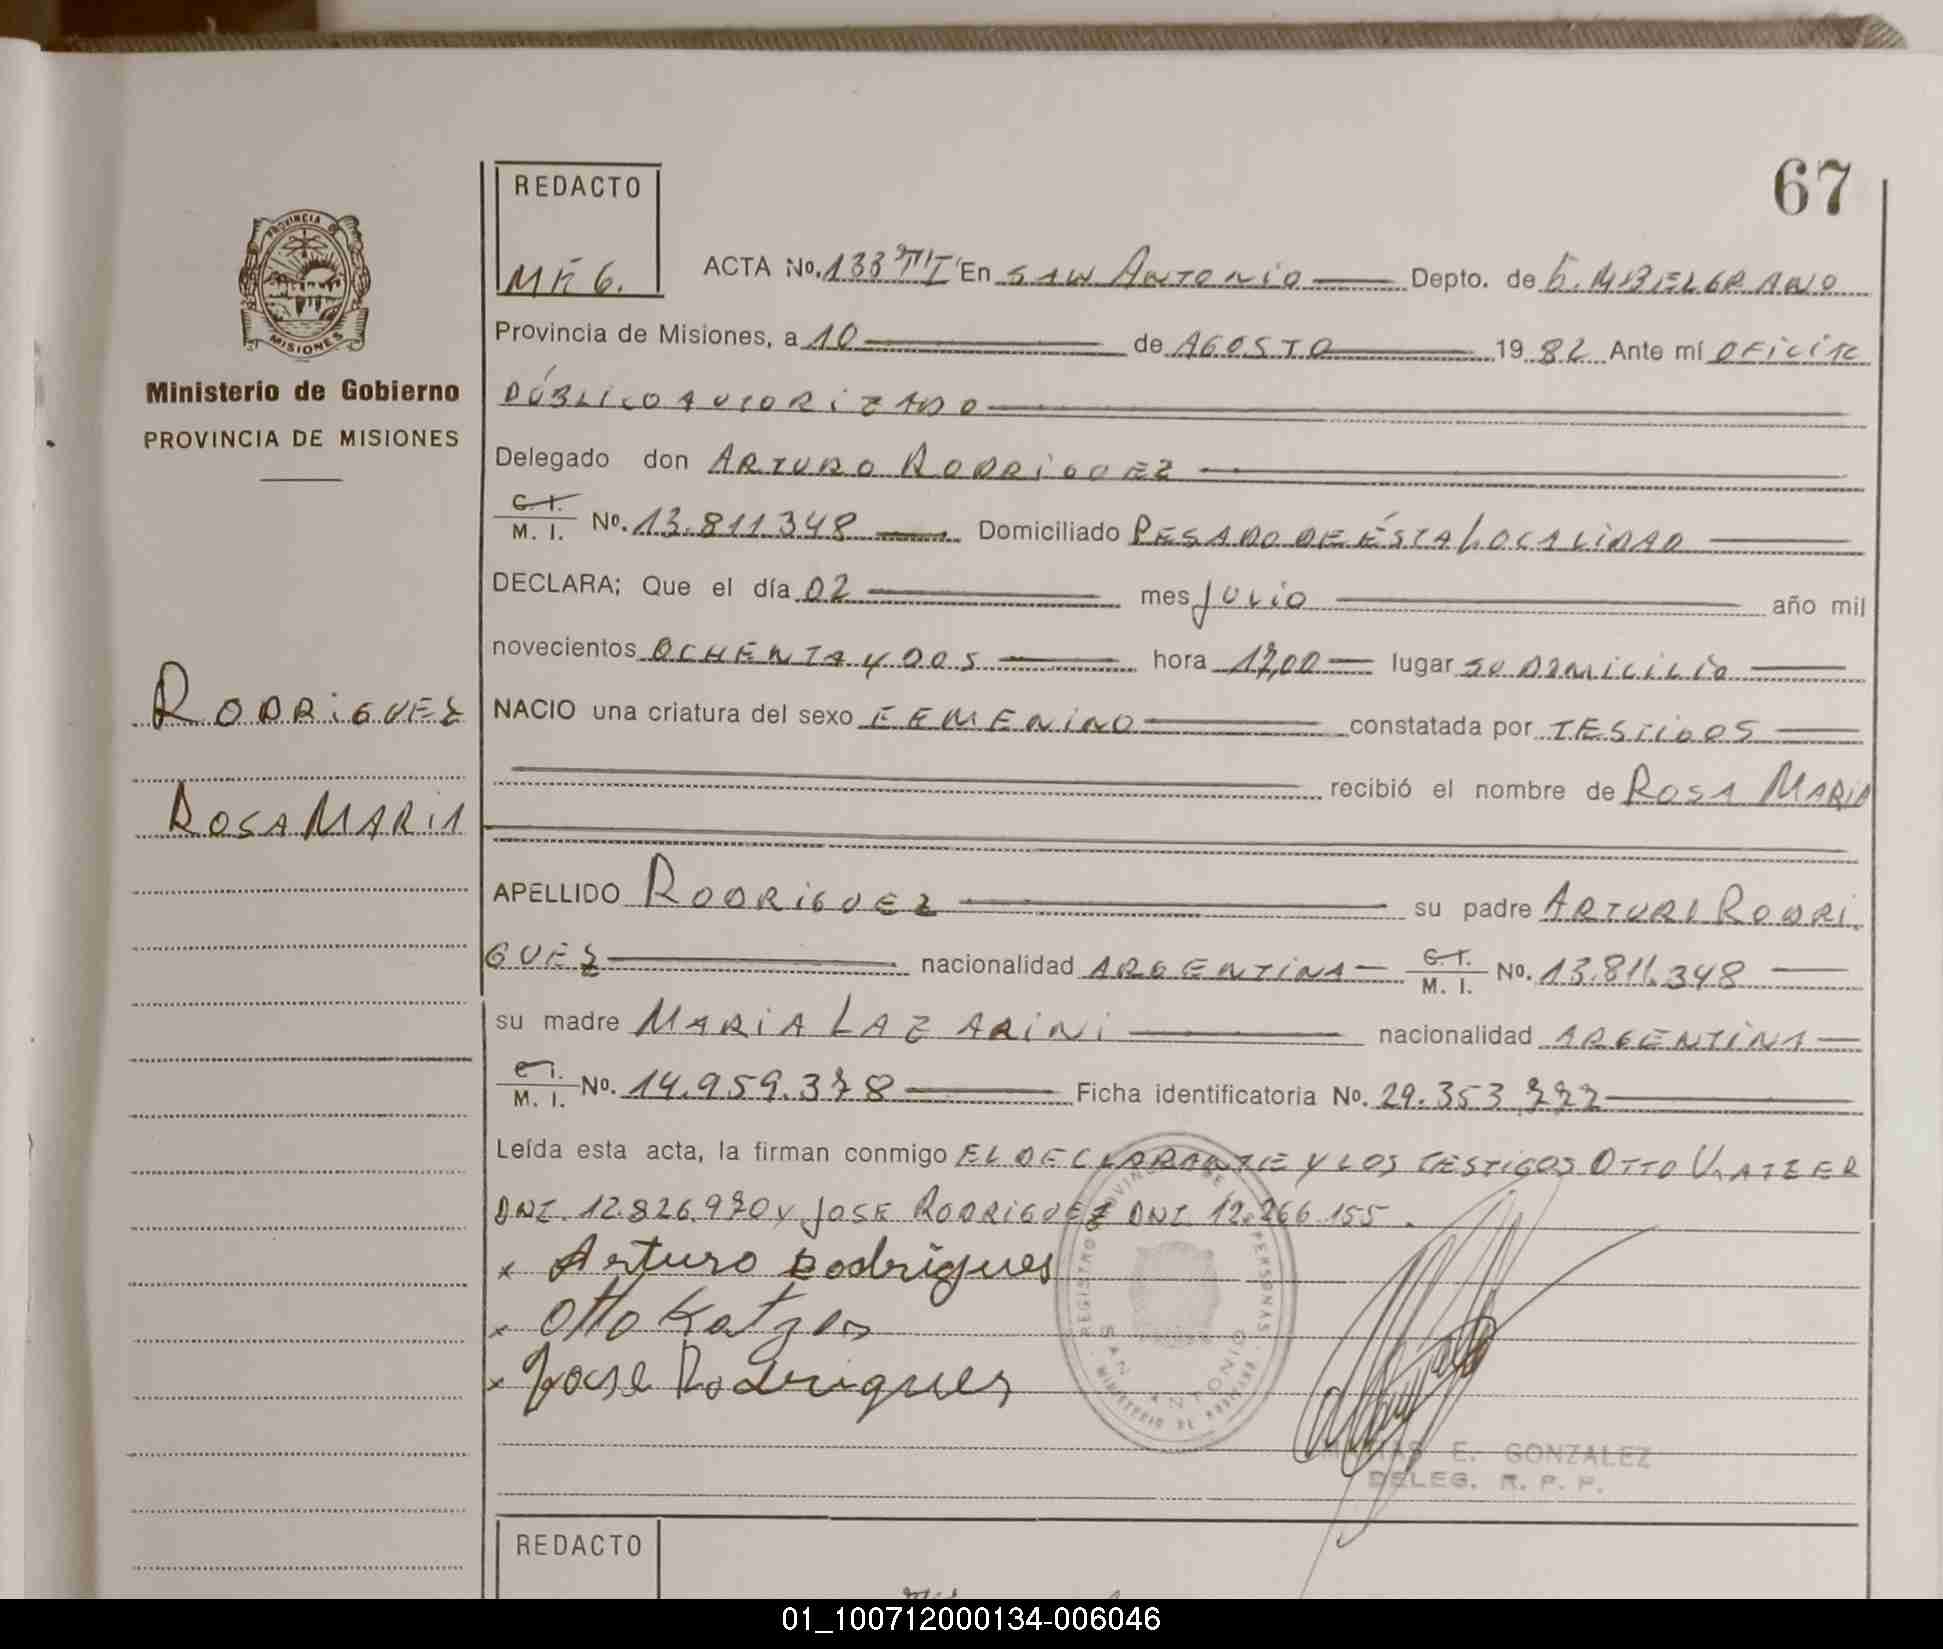 67
REDACTO
MEG.
PROVINCIA DE
MISIONES
Ministerio de Gobierno
PROVINCIA DE MISIONES
RODRIGUEZ
ROSA MARIA
ACTA No. 133 TI En SAN ANTONIO Depto. de G. M BELGRANO
Provincia de Misiones, a 10 de AGOSTO 1982 Ante mí OFICIAL
PÚBLICO AUTORIZADO
Delegado don ARTURO RODRIGUEZ
C. I.
M. I. No. 13.811.348 Domiciliado PESADO DE ÉSTA LOCALIDAD
DECLARA; Que el día 02 mes JULIO año mil
novecientos OCHENTA Y DOS hora 17,00 lugar SU DOMICILIO
NACIO una criatura del sexo FEMENINO constatada por TESTIGOS
recibió el nombre de ROSA MARIA
APELLIDO RODRIGUEZ su padre ARTURO RODRI
GUEZ nacionalidad ARGENTINA C. I.
M. I. No. 13.811.348
su madre MARIA LAZARINI nacionalidad ARGENTINA
C. I.
M. I. No. 14.959.378 Ficha identificatoria No. 29.353.777
Leída esta acta, la firman conmigo EL DECLARANTE Y LOS TESTIGOS OTTO KATZER
DNI. 12.826.970 Y JOSE RODRIGUEZ DNI 12.266.155.
x Arturo Rodrigues
x Otto Katzer
x Jose Rodrigues
REGISTRO PROVINCIAL DE PERSONAS
SAN ANTONIO
MINISTERIO DE GOBIERNO
E. GONZALEZ
DELEG. R. P. P.
REDACTO
01_100712000134-006046